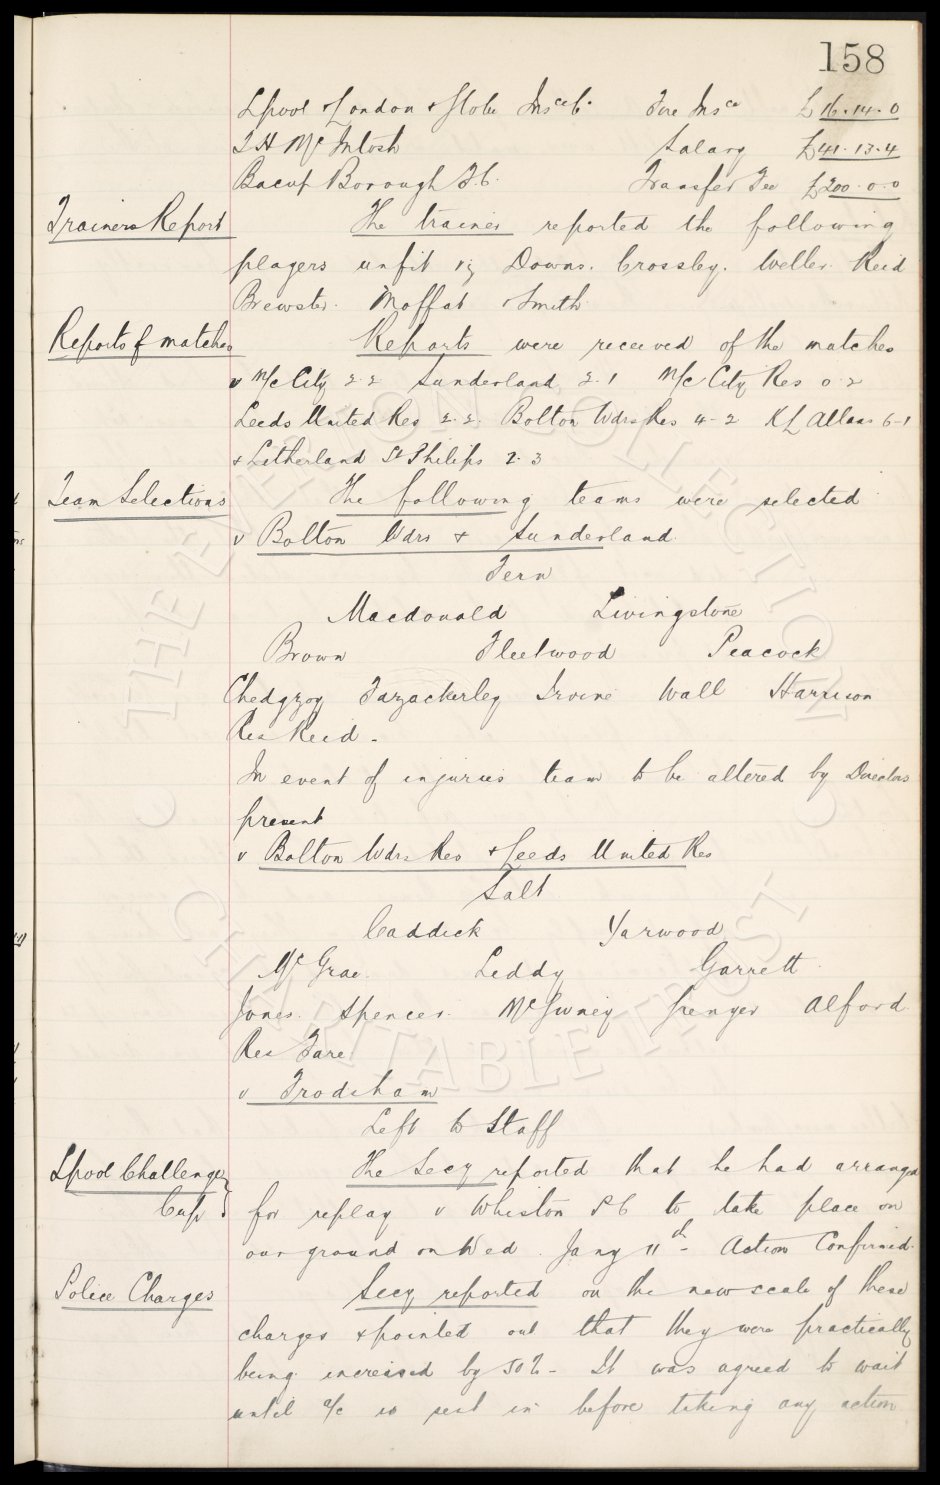 158
Lpool & London & Globe Insce Co. Fire Insce £16.14.0
T H McIntosh Salary £41.13.4
Bacup Borough F.C. Transfer Fee £200.0.0
Trainers Report The trainer reported the following
players unfit viz Downs. Crossley. Weller. Reid
Brewster. Moffat & Smith
Reports of matches Reports were received of the matches
v M/c City 2.2 Sunderland 2.1 M/c City Res 0.2
Leeds United Res 2.2. Bolton Wdrs Res 4-2 6-1
& Litherland St Philips 2.3
Team Selections The following teams were selected
v Bolton Wdrs & Sunderland
Fern
Macdonald Livingstone
Brown Fleetwood Peacock
Chedgzoy Fazackerley Irvine Wall Harrison
Res Reid -
In event of injuries team to be altered by Directors
present
v Bolton Wdrs Res & Leeds United Res
Salt
Caddick Yarwood
McGrae Leddy Garrett
Jones. Spencer. Grenyer Alford
Res Fare
v Frodsham
Left to Staff
Lpool Challenge The Secy reported that he had arranged
Cup for replay v Whiston P C to take place on
our ground on Wed. Jany 11th - Action Confirmed.
Police Charges Secy reported on the new scale of these
charges & pointed out that they were practically
being increased by 50% - It was agreed to wait
until a/c is sent in before taking any action
THE EVERTON COLLECTION
CHARITABLE TRUST